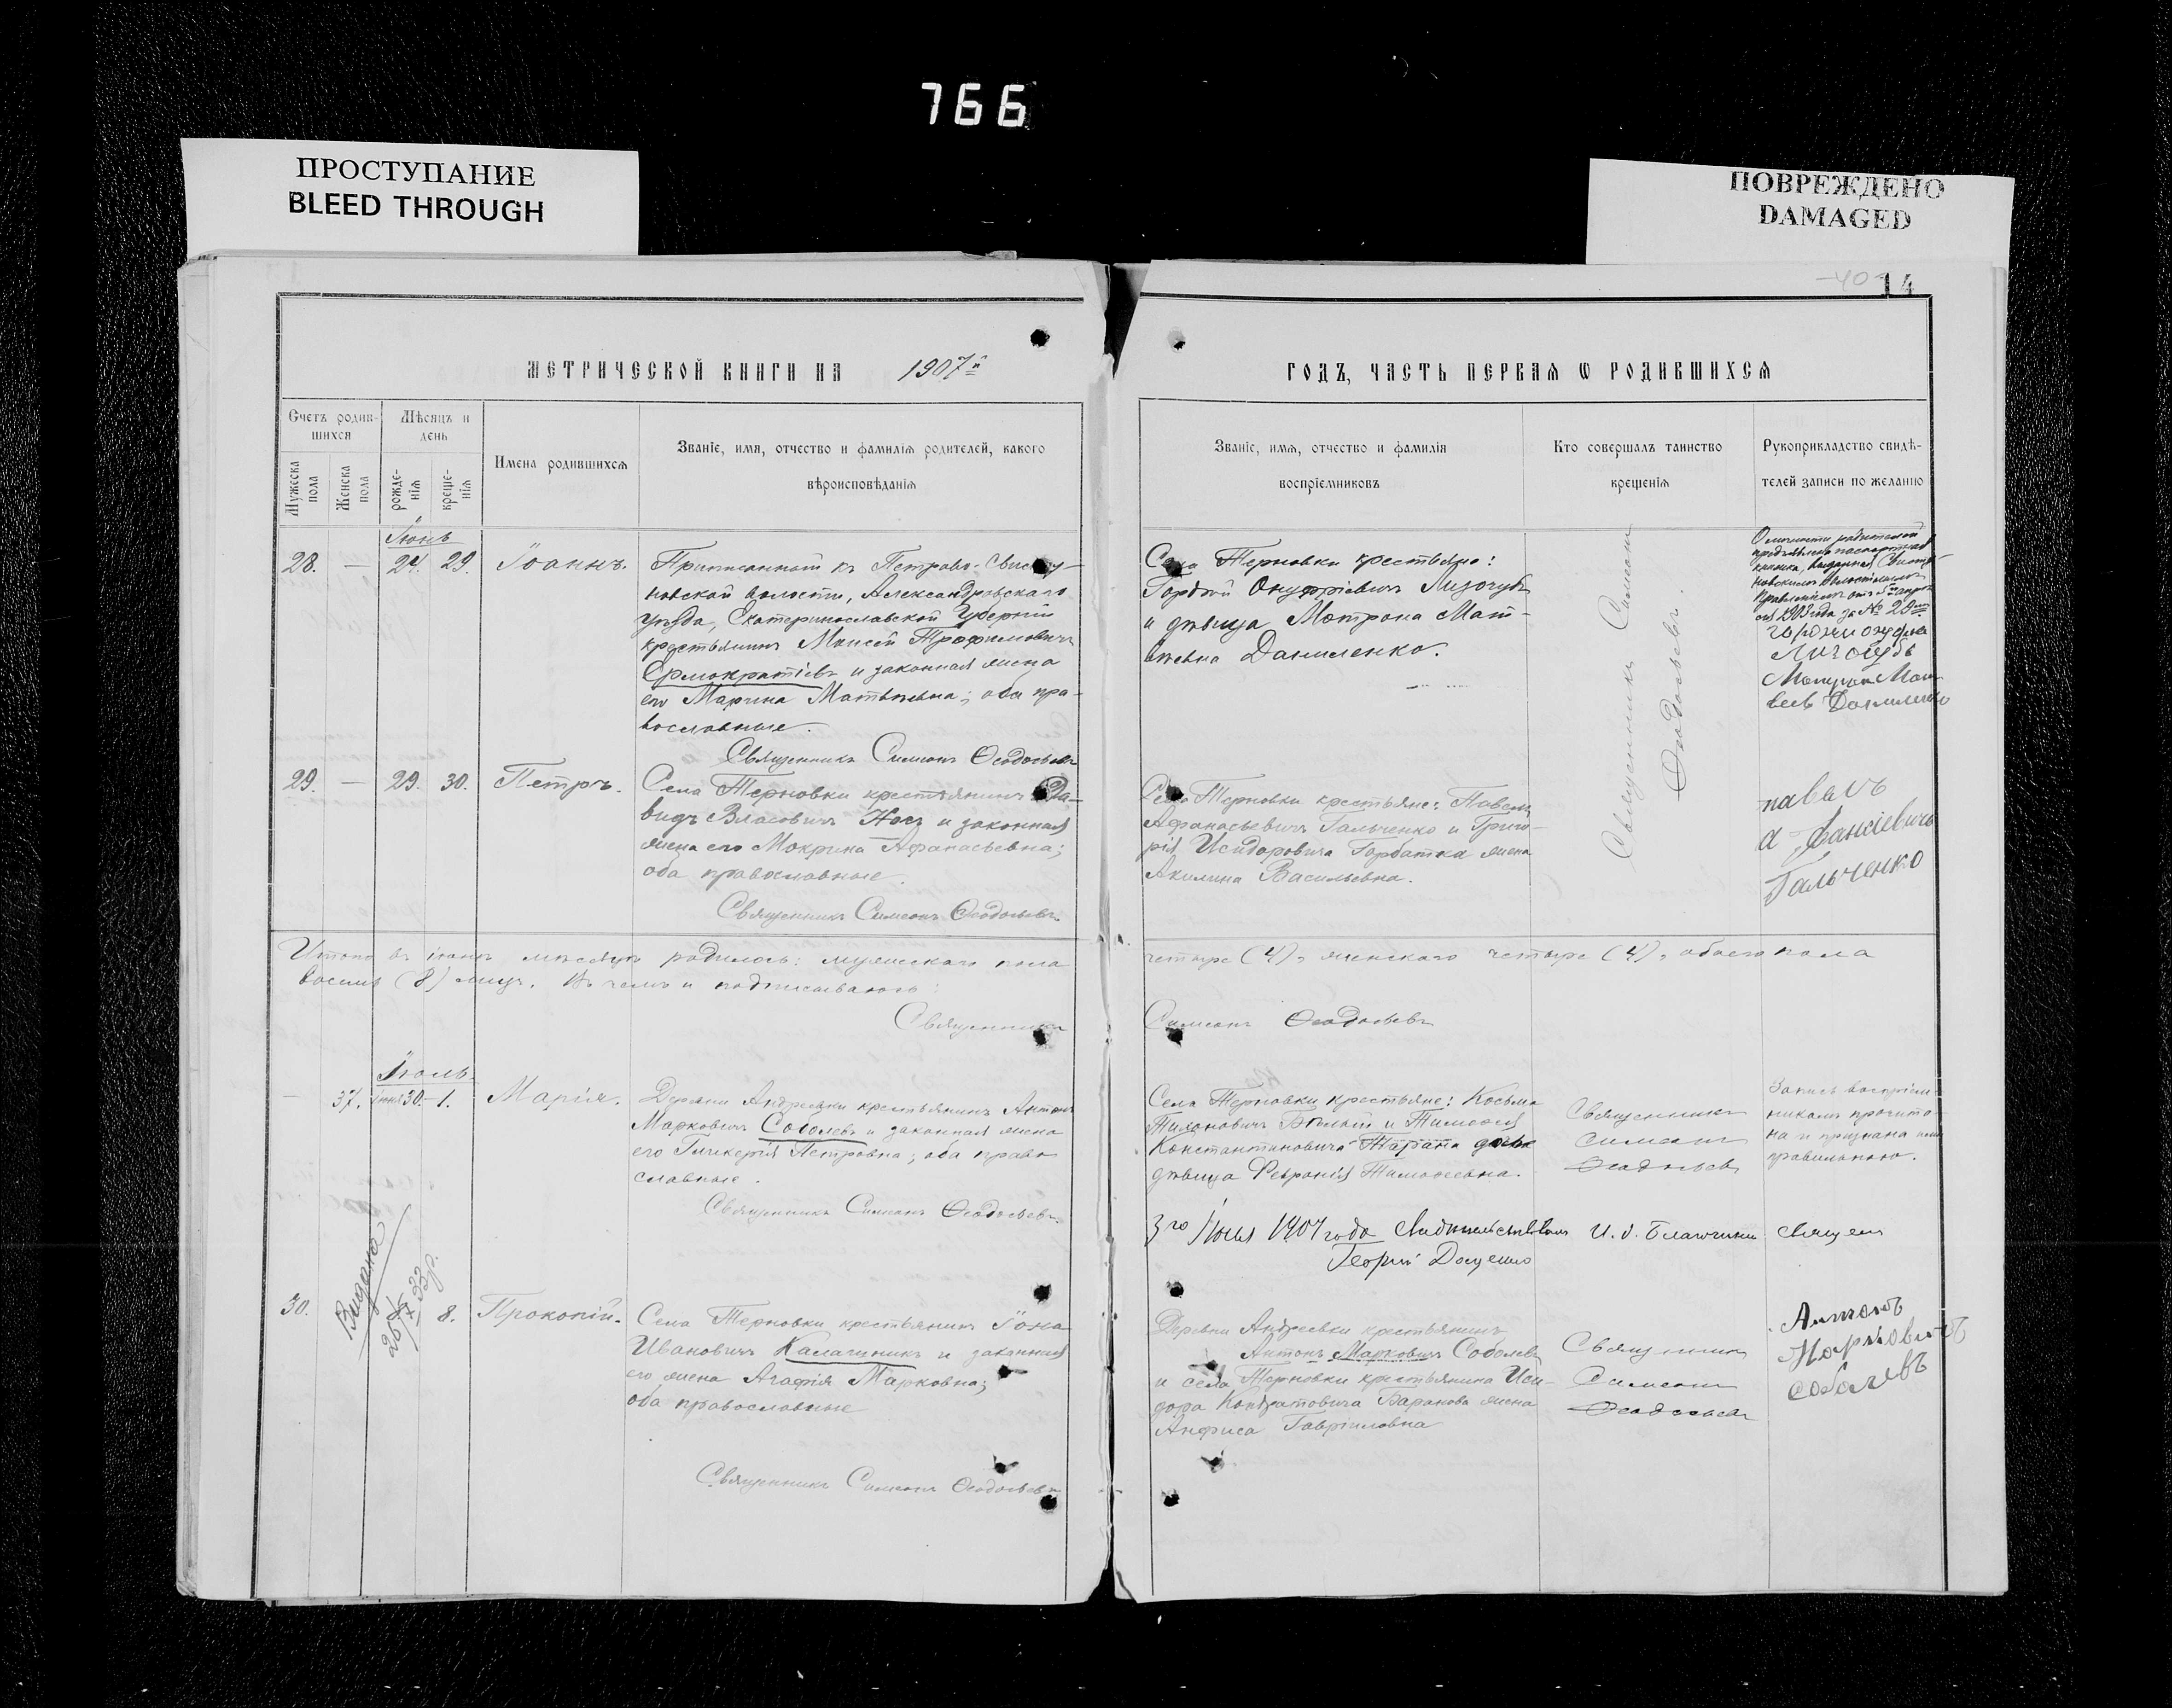 766
ПРОСТУПАНИЕ
BLEED THROUGH
ПОВРЕЖДЕНО
DAMAGED
-40-
14
МЕТРИЧЕСКОЙ КНИГИ НА 1907й
ГОДЪ, ЧАСТЬ ПЕРВАЯ Ѡ РОДИВШИХСЯ
Счетъ родив-
шихся
Мѣсяцъ и
день
Мужеска
пола
Женска
пола
рожде-
нія
креще-
нія
Имена родившихся
Званіе, имя, отчество и фамилія родителей, какого
вѣроисповѣданія
Званіе, имя, отчество и фамилія
воспріемниковъ
Кто совершалъ таинство
крещенія
Рукоприкладство свидѣ-
телей записи по желанію
Іюнь
28. — 24. 29. Іоаннъ.
Приписанный къ Петрово-Свисту-
новской волости, Александровскаго
уѣзда, Екатеринославской Губерніи
крестьянинъ Моисей Трофимовичъ
Ермократіевъ и законная жена
его Марина Матвѣевна; оба пра-
вославные.
Священникъ Симеонъ Ѳеодосьевъ
Села Терновки крестьяне:
Гордѣй Онуфріевичъ Лизогубъ
и дѣвица Мотрона Мат-
вѣевна Даниленко.
Священникъ Симеонъ
Ѳеодосьевъ.
О личности родителей
предъявлена паспортная
книжка, выданная Свисту-
новскимъ Волостнымъ
Правленіемъ отъ
1903 года за № 29
Лизогубъ
Даниленко
29. — 29. 30. Петръ.
Села Терновки крестьянинъ Да-
видъ Власовичъ Носъ и законная
жена его Мокрина Афанасьевна;
оба православные.
Священникъ Симеонъ Ѳеодосьевъ.
Села Терновки крестьяне: Павелъ
Афанасьевичъ Гальченко и Григо-
рія Исидоровича Горбатка жена
Акилина Васильевна.
павелъ
афансіевичъ
Гальченко
Итого въ іюнѣ мѣсяцѣ родилось: мужскаго пола
четыре (4), женскаго четыре (4), обоего пола
восемь (8) лицъ. Въ чемъ и подписываюсь:
Священникъ
Симеонъ Ѳеодосьевъ
Іюль.
— 37. іюня 30. 1. Марія.
Деревни Андреевки крестьянинъ Антонъ
Марковичъ Соболевъ и законная жена
его Гликерія Петровна; оба право
славные.
Священникъ Симеонъ Ѳеодосьевъ.
Села Терновки крестьяне: Косьма
Тихоновичъ Бѣлый и Тимоѳея
Константиновича Тарана дочь
дѣвица Февронія Тимоѳеевна.
Священникъ
Симеонъ
Ѳеодосьевъ
Запись воспріем-
никамъ прочита-
на и признана ими
правильною.
3го Іюля 1907 года Свидѣтельствовалъ И. д. Благочинн священ
Георгій Доценко
Видана
33р.
30. 8. Прокопій.
Села Терновки крестьянинъ Іона
Ивановичъ Калачникъ и законная
его жена Агафія Марковна;
оба православные
Священникъ Симеонъ Ѳеодосьевъ
Деревни Андреевки крестьянинъ
Антонъ Марковичъ Соболевъ
и села Терновки крестьянина Иси-
дора Кондратовича Баранова жена
Анфиса Гавріиловна
Священникъ
Симеонъ
Ѳеодосьевъ
Антонъ
Марковичъ
Соболевъ